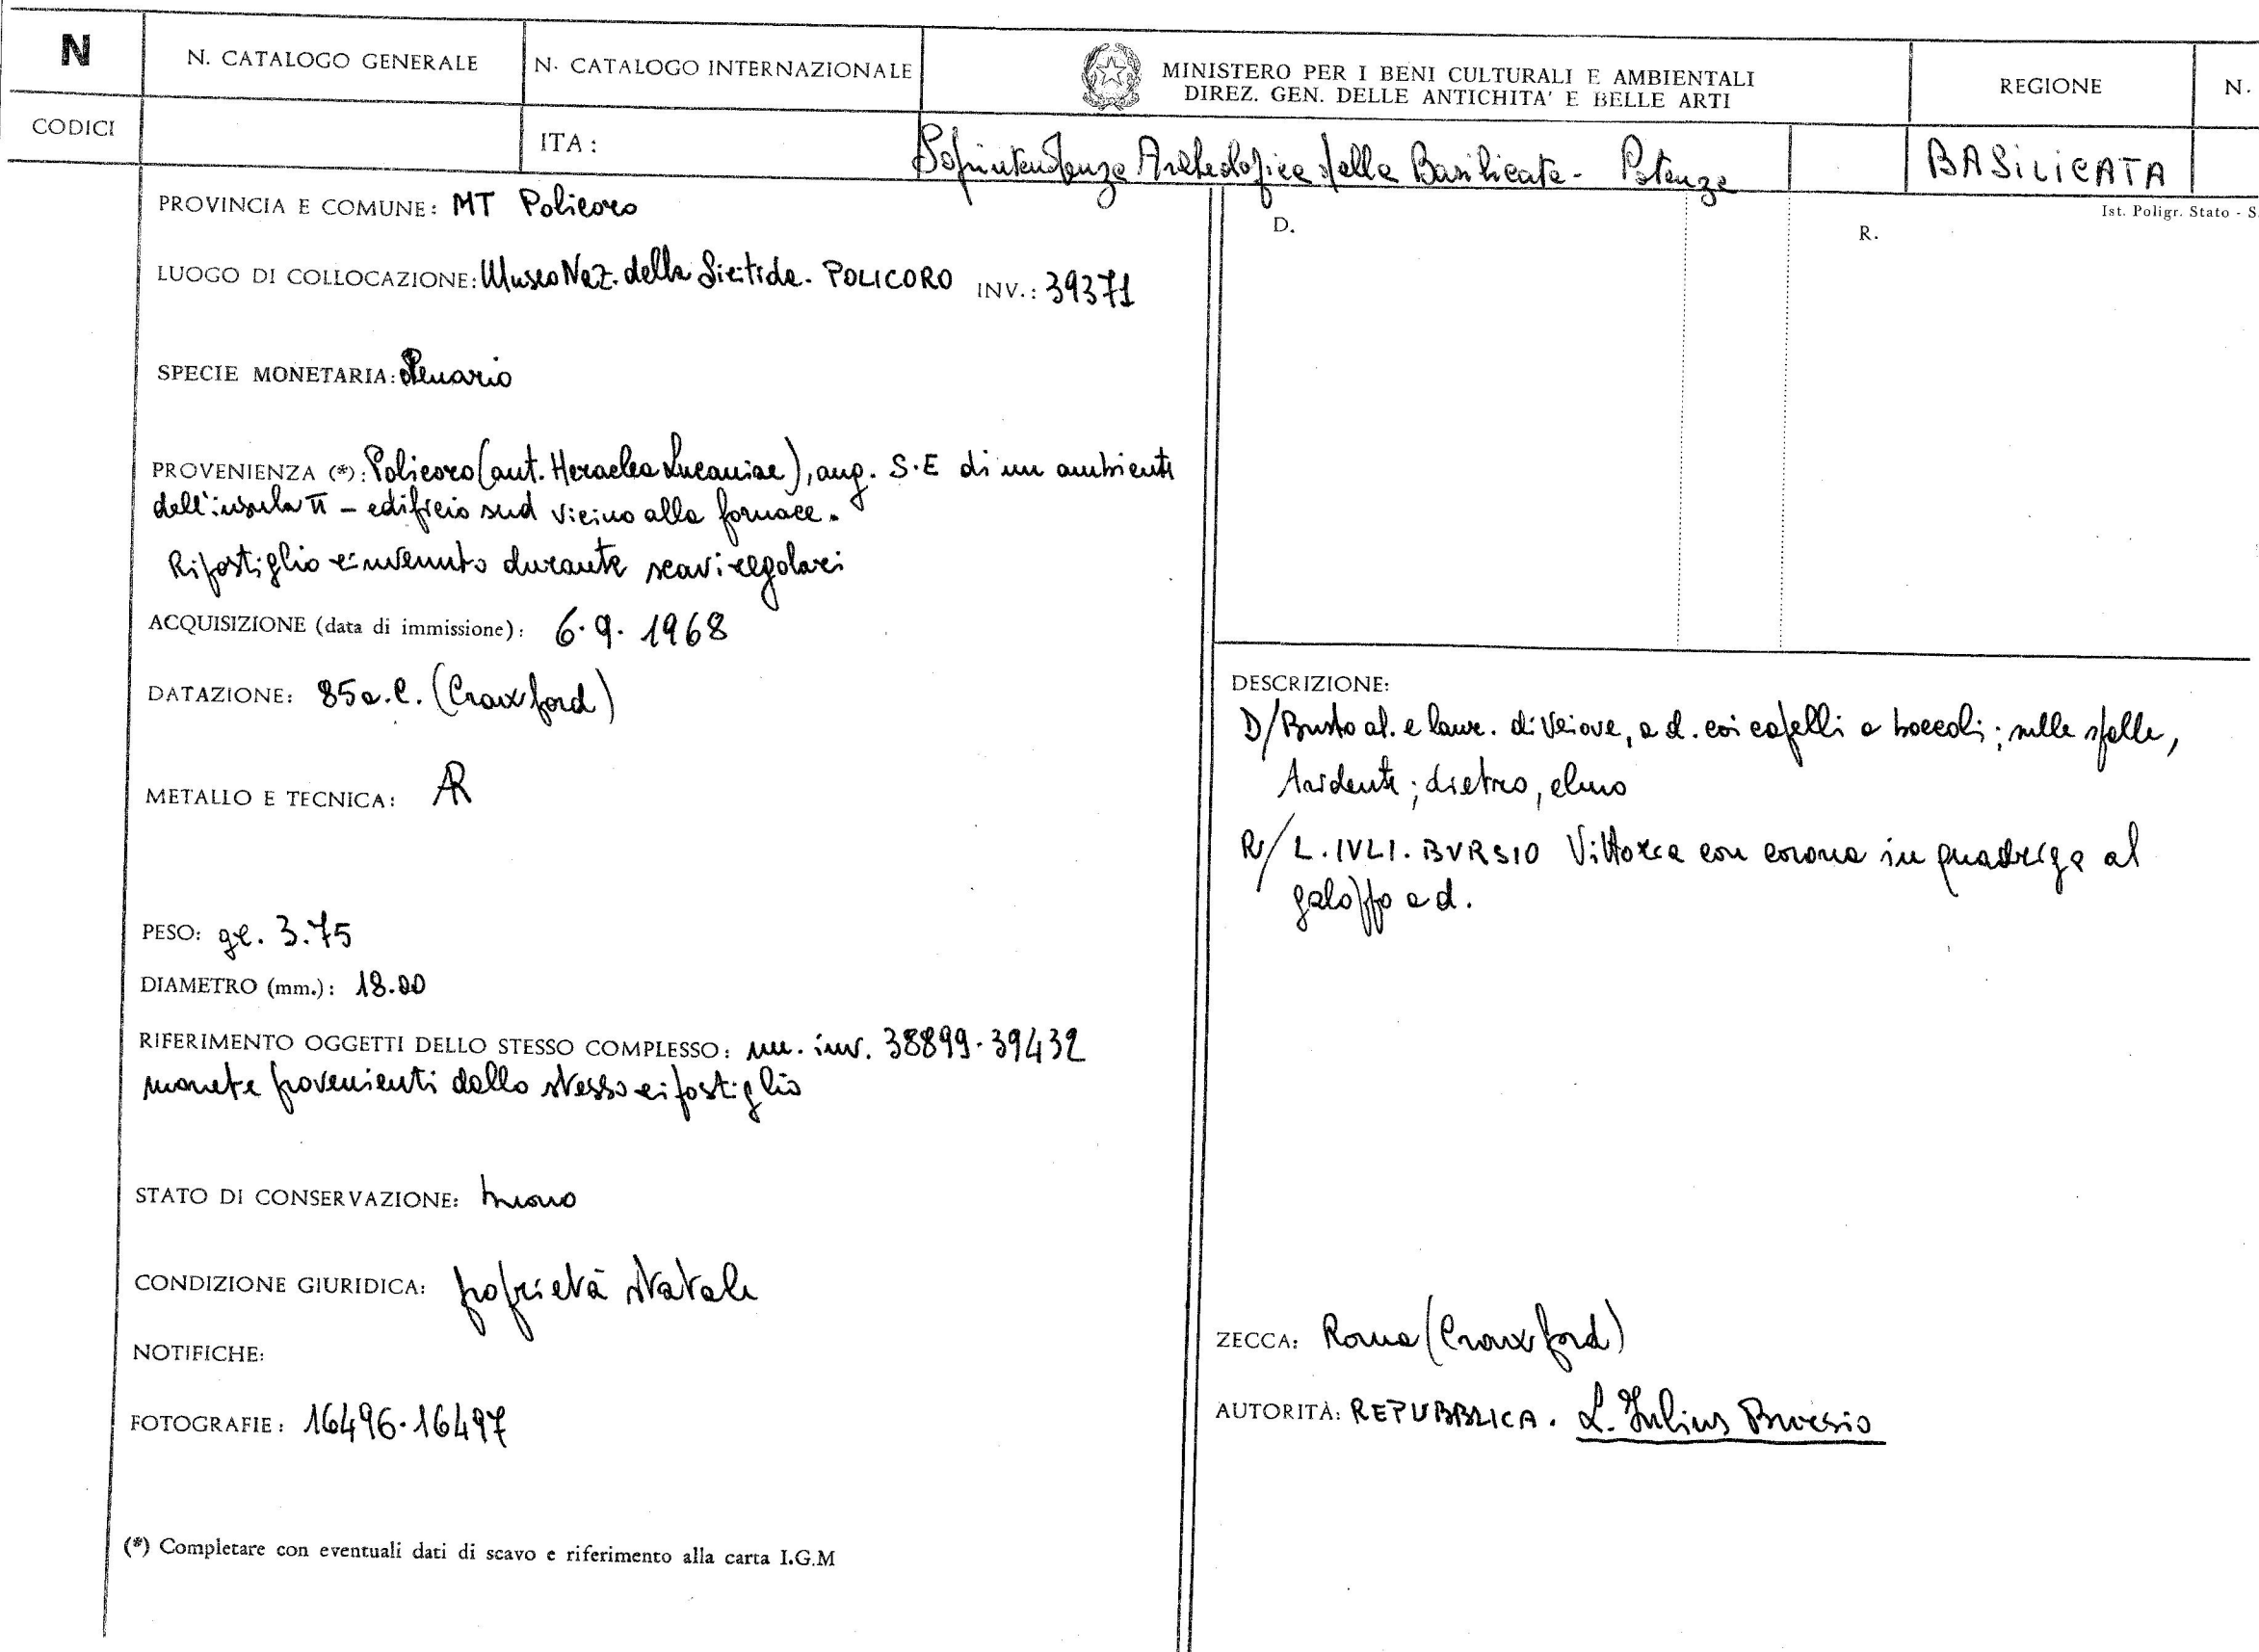 N
N. CATALOGO GENERALE
N. CATALOGO INTERNAZIONALE
MINISTERO PER I BENI CULTURALI E AMBIENTALI
DIREZ. GEN. DELLE ANTICHITA' E BELLE ARTI
REGIONE
N.
CODICI
ITA:
Soprintendenza Archeologica della Basilicata - Potenza
BASILICATA
Ist. Poligr. Stato - S.
PROVINCIA E COMUNE: MT Policoro
LUOGO DI COLLOCAZIONE: Museo Naz. della Siritide. POLICORO INV.: 39371
SPECIE MONETARIA: Denario
PROVENIENZA (*): Policoro (ant. Heraclea Lucaniae), ang. S.E di un ambiente
dell'insula II - edificio sud vicino alla fornace.
Ripostiglio rinvenuto durante scavi regolari
ACQUISIZIONE (data di immissione): 6.9.1968
DATAZIONE: 85 a.C. (Crawford)
METALLO E TECNICA: AR
PESO: gr. 3.75
DIAMETRO (mm.): 18.00
RIFERIMENTO OGGETTI DELLO STESSO COMPLESSO: nn. inv. 38899-39432
monete provenienti dallo stesso ripostiglio
STATO DI CONSERVAZIONE: buono
CONDIZIONE GIURIDICA: proprietà statale
NOTIFICHE:
FOTOGRAFIE: 16496-16497
(*) Completare con eventuali dati di scavo e riferimento alla carta I.G.M
D.
R.
DESCRIZIONE:
D/ Busto al. e laur. di Veiove, a d. coi capelli a boccoli; sulle spalle,
tridente; dietro, elmo
R/ L.IVLI.BVRSIO Vittoria con corona in quadriga al
galoppo a d.
ZECCA: Roma (Crawford)
AUTORITÀ: REPUBBLICA. L. Iulius Bursio